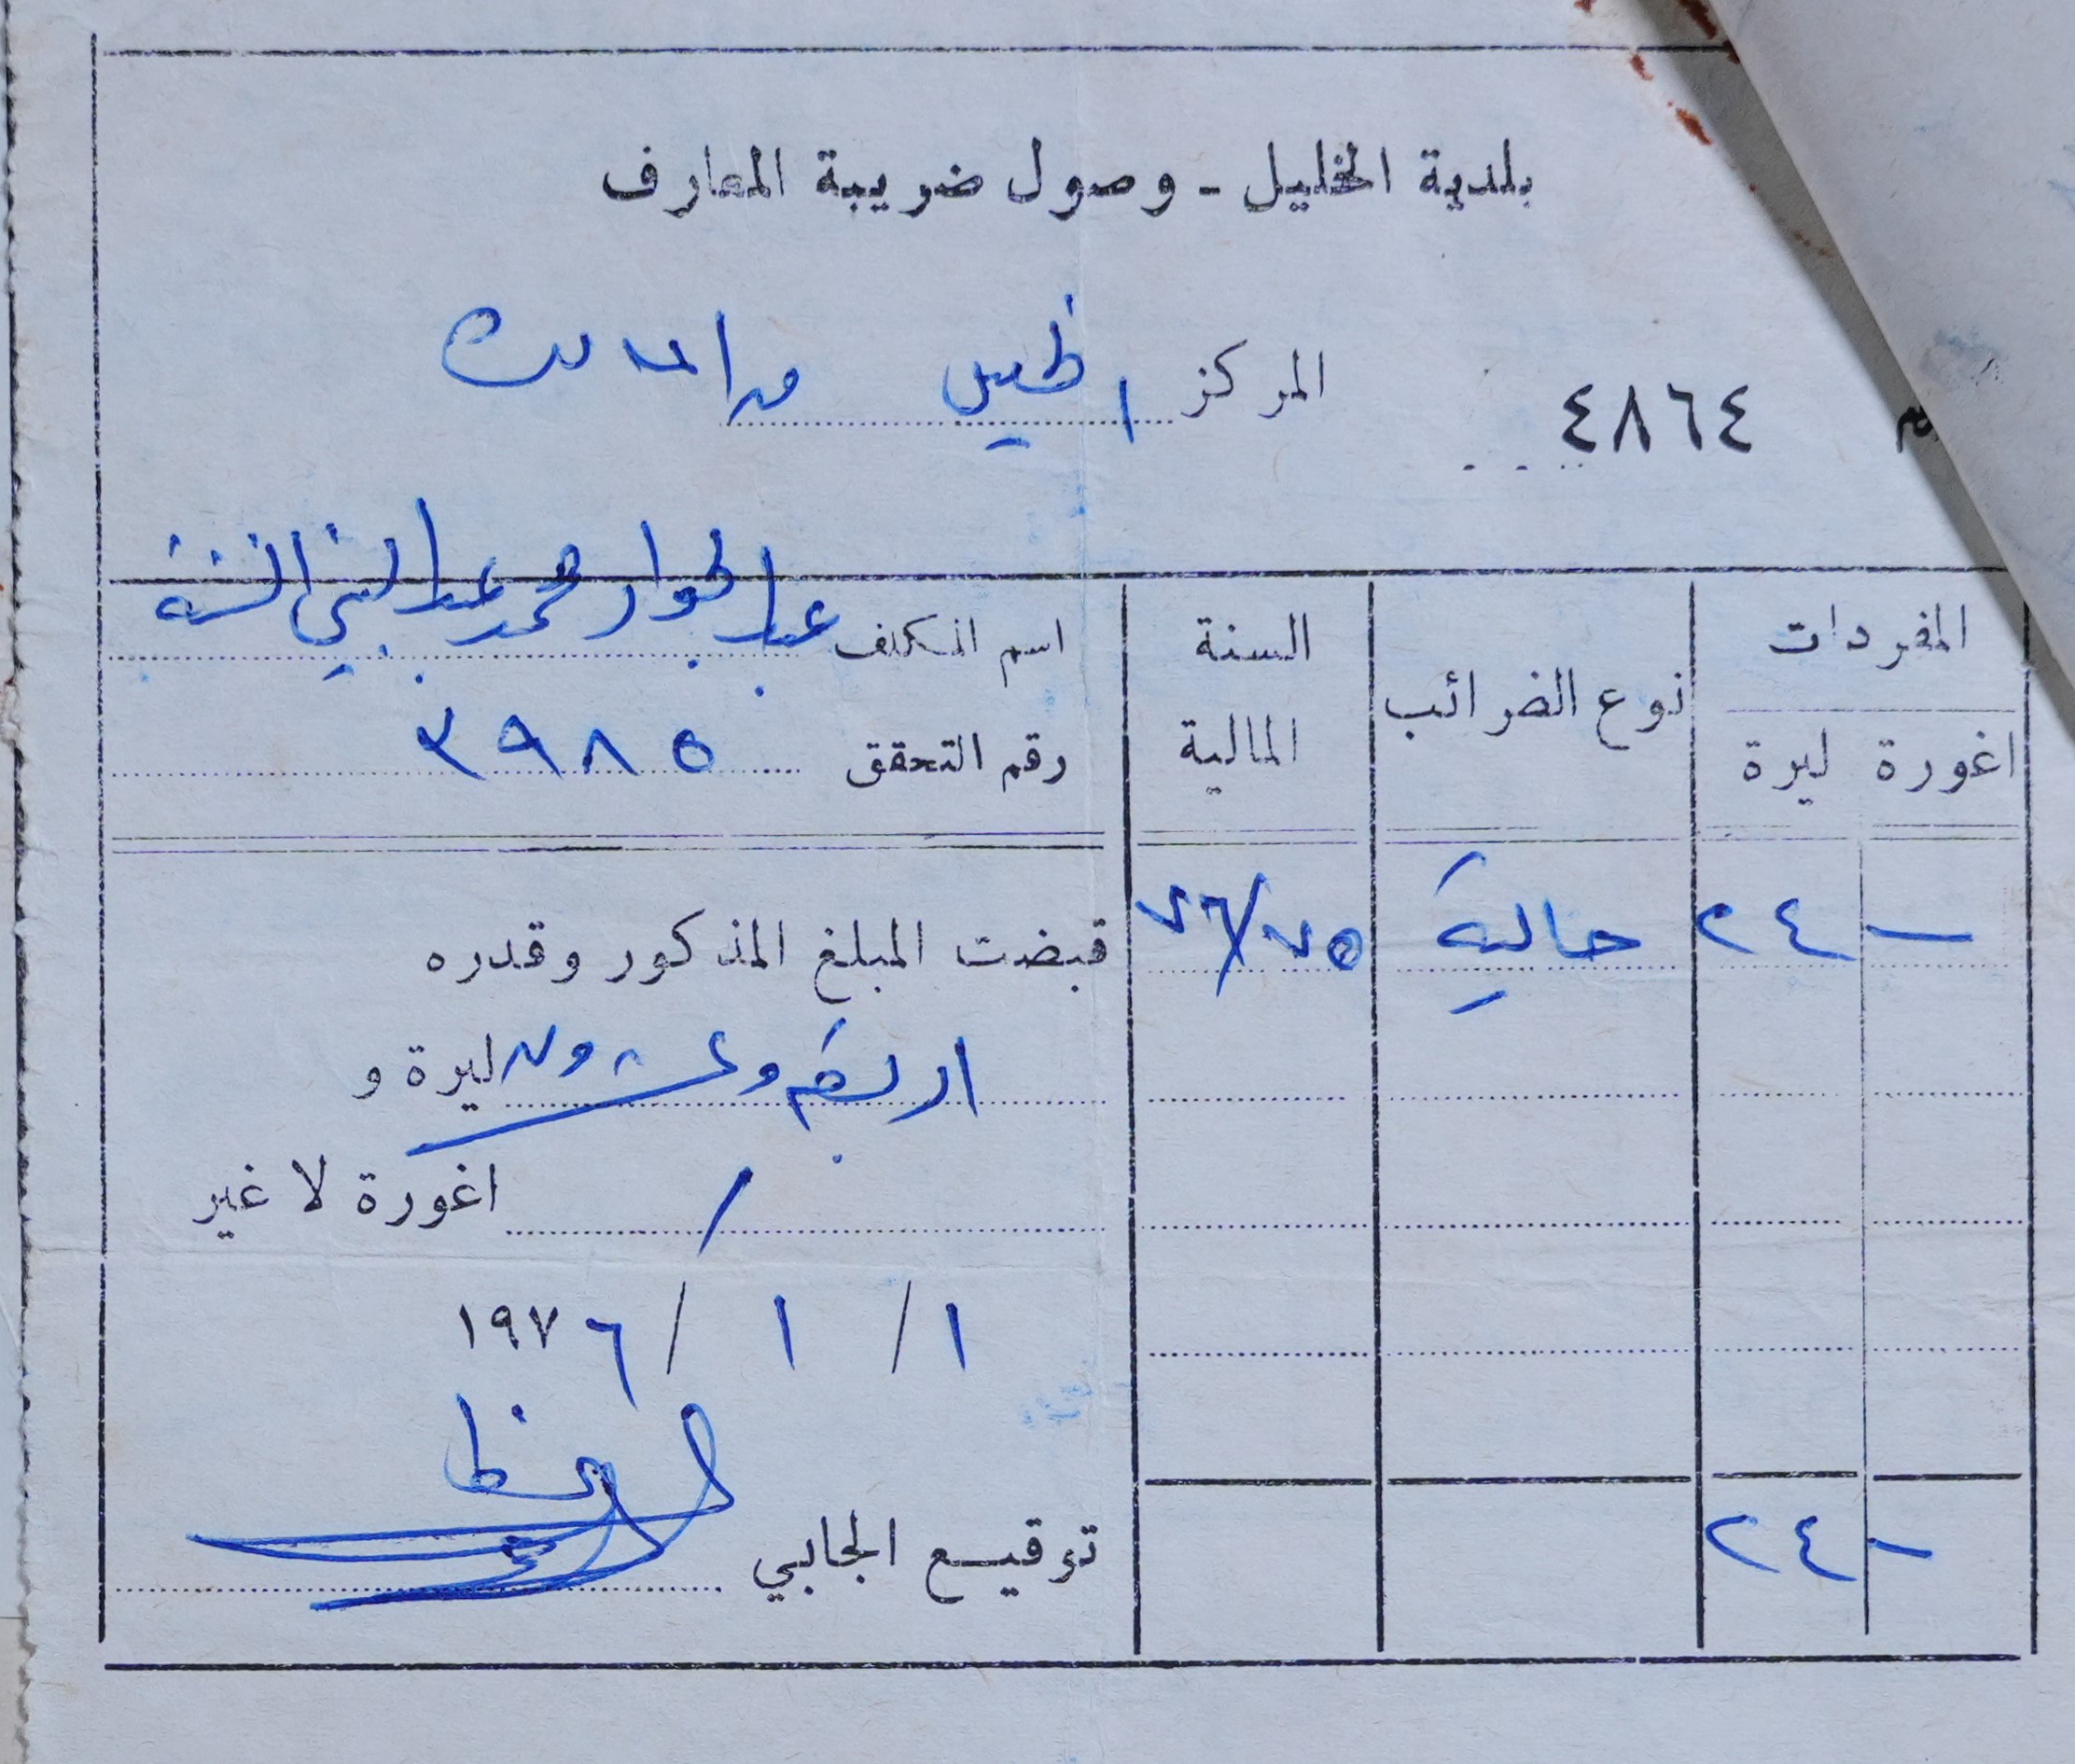 بلدية الخليل - وصول ضريبة المعارف
٤٨٦٤
المركز الخليل من المالك
المفردات
اغورة ليرة
نوع الضرائب
السنة المالية
اسم المكلف عبد الجواد محمد عبد النبي النتشة
رقم التحقق ٣٩٨٥
- ٢٤ حالية ٧٦/٧٥
قبضت المبلغ المذكور وقدره
اربعة وعشرون ليرة و
/ اغورة لا غير
١ / ١ / ١٩٧٦
توقيع الجابي
- ٢٤